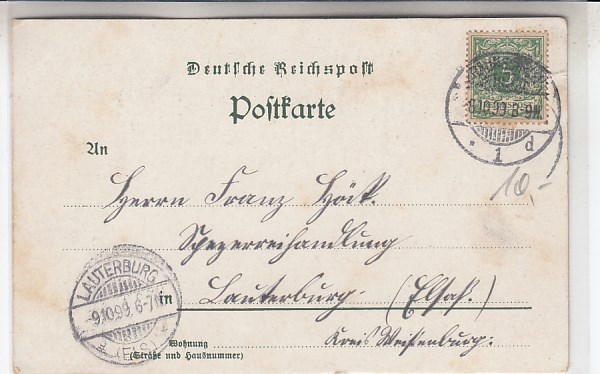 Deutsche Reichspost
Postkarte
5
8.10.99. 8-9N.
* 1 d
An
Herrn Franz Höck.
10,-
Spezereihandlung
in Lauterburg (Elsaß.)
Kreis Weißenburg.
LAUTERBURG
9.10.99. 6-7
* (ELS)
Wohnung
(Straße und Hausnummer)